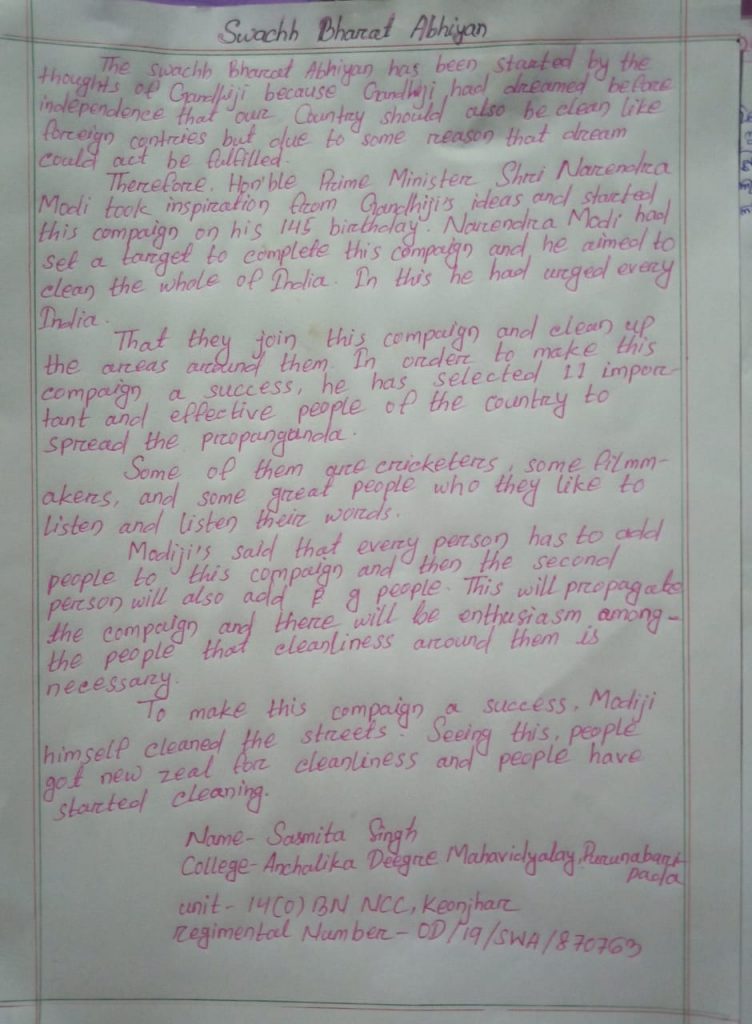 Swachh Bharat Abhiyan
The swachh Bharat Abhiyan has been started by the
thoughts of Gandhiji because Gandhiji had dreamed before
independence that our Country should also be clean like
foreign contries but due to some reason that dream
could act be fulfilled.
Therefore, Hon'ble Prime Minister Shri Narendra
Modi took inspiration from Gandhiji's ideas and started
this compaign on his 145 birthday. Narendra Modi had
set a target to complete this compaign and he aimed to
clean the whole of India. In this he had urged every
India.
That they join this compaign and clean up
the areas around them. In order to make this
compaign a success, he has selected 11 impor-
tant and effective people of the country to
spread the propanganda.
Some of them are cricketers, some filmm-
akers, and some great people who they like to
listen and listen their words.
Modiji's said that every person has to add
people to this compaign and then the second
person will also add g people. This will propagate
the compaign and there will be enthusiasm among-
the people that cleanliness around them is
necessary.
To make this compaign a success, Modiji
himself cleaned the streets. Seeing this, people
got new zeal for cleanliness and people have
started cleaning.
Name- Sasmita Singh
College- Anchalika Deegre Mahavidyalay, Purunabari
pada
unit - 14(O) BN NCC, Keonjhar
regimental Number - OD/19/SWA/870763